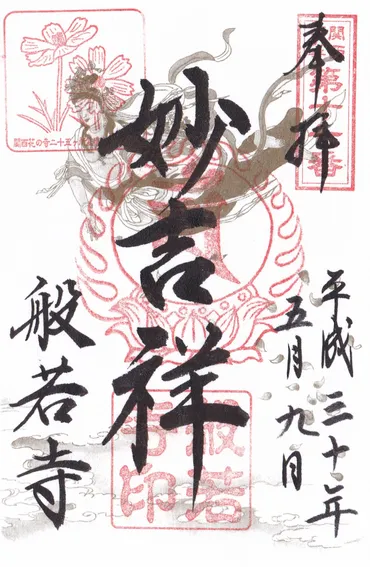 奉拝
平成三十年
五月九日
妙吉祥
般若寺
関西花の寺二十五
第 番
般若寺印